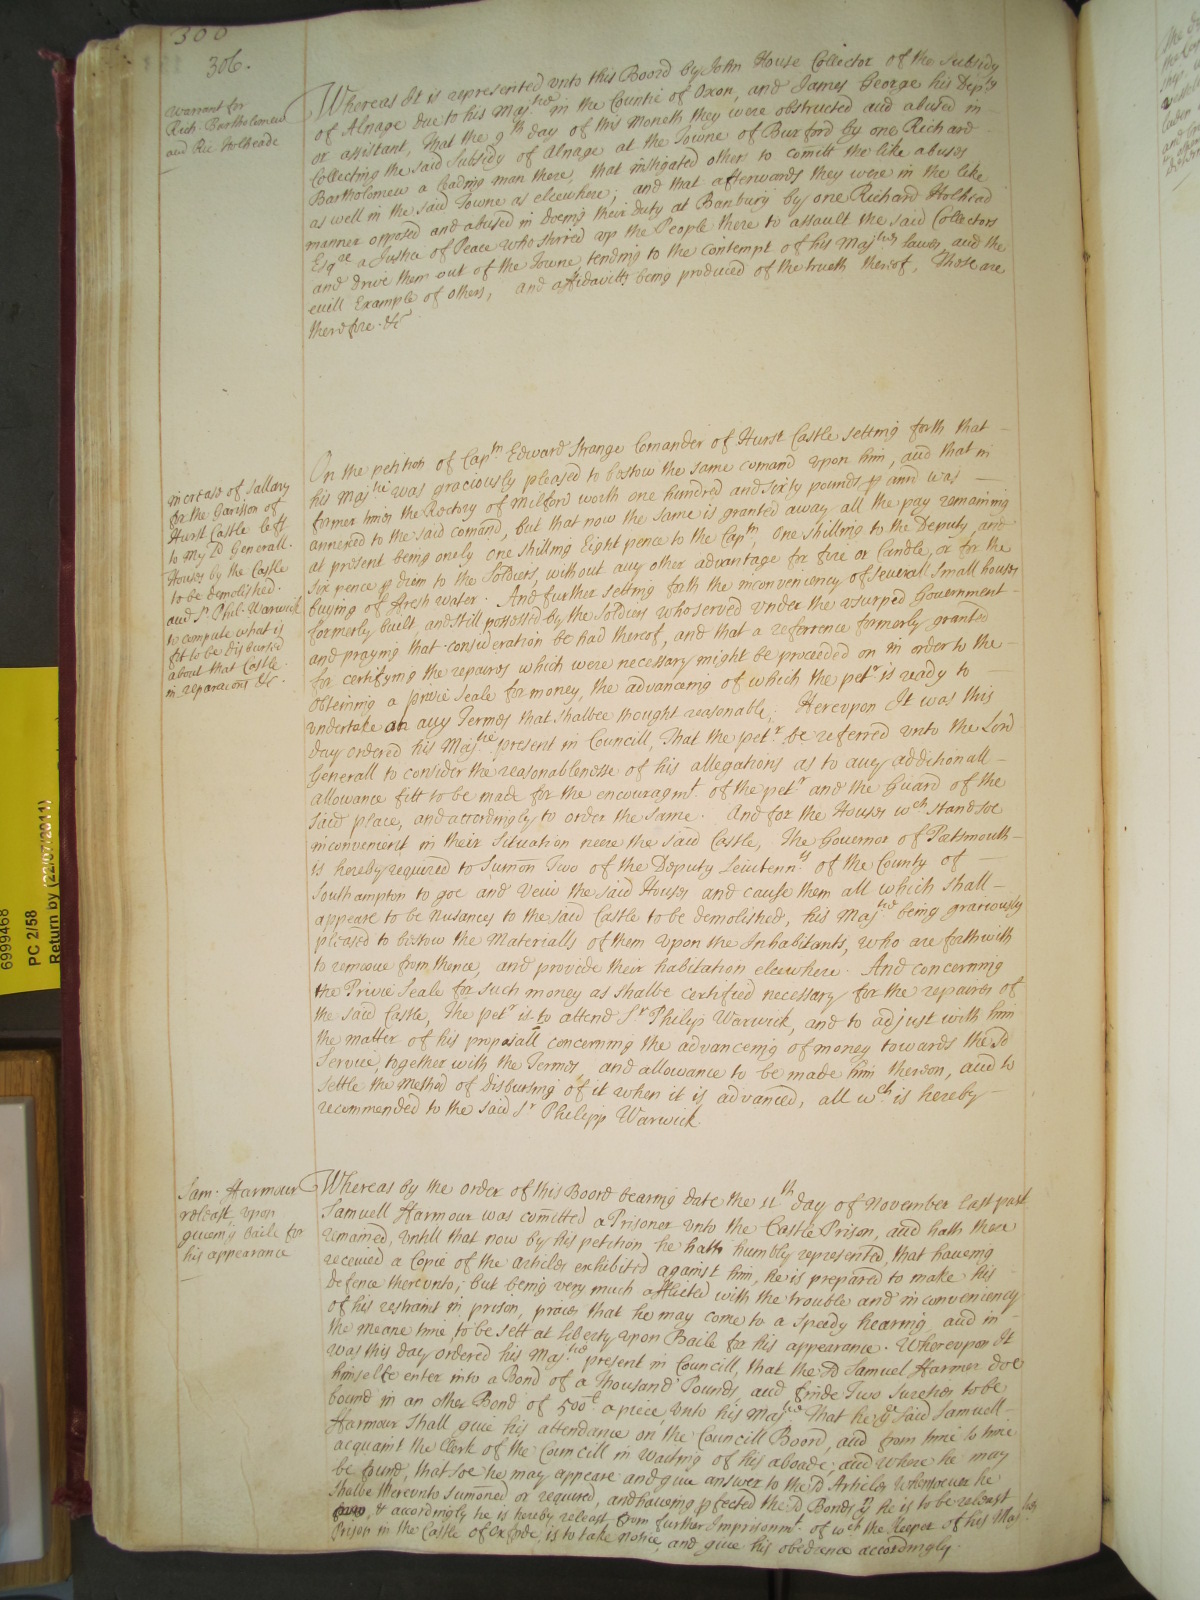 300
306.
Warrant for
Rich. Bartholomew
and Ric Holheade
Whereas It is represented vnto this Board by John House Collector of the Subsidy
of Alnage due to his Maj.tie in the Countie of Oxon, and James George his Dep.ty
or assistant, That the 9th day of this Moneth they were obstructed and abused in
Collecting the said Subsidy of Alnage at the Towne of Burford by one Richard
Bartholomew a leading man there, that instigated others to comitt the like abuses
as well in the said Towne as elsewhere; and that afterwards they were in the like
manner opposed and abused in doeing their duty at Banbury by one Richard Holhead
Esq.re a Justice of Peace who stirred vp the People there to assault the said Collectors
and drive them out of the Towne tending to the contempt of his Maj.ties lawes, and the
euill Example of others, and affidavitts being produced of the trueth thereof, These are
therefore &c
increase of Sallary
for the Garison of
Hurst Castle left
to My Ld Generall.
Houses by the Castle
to be demolished.
and Sr Phil. Warwick
to compute what is
fit to be disbursed
about that Castle
in reparacions &c.
On the petition of Cap.tn Edward Strange Comander of Hurst Castle setting forth that
his Maj.tie was graciously pleased to bestow the same comand vpon him, and that in
former times the Rectory of Milford worth one hundred and sixty pounds p ann was
annexed to the said comand, but that now the same is granted away all the pay remaining
at present being onely one shilling Eight pence to the Cap.tn, One shilling to the Deputy and
six pence p diem to the Soldiers, without any other advantage for fire or Candle, or for the
buying of fresh water. And further setting forth the inconveniency of severall small houses
formerly built and still possessed by the Soldiers who served vnder the vsurped Government
and praying that consideration be had thereof, and that a reference formerly granted
for certifying the repaires which were necessary might be proceeded on in order to the
obteining a privie Seale for money, the advanceing of which the pet.r is ready to
vndertake on any Termes that shalbee thought reasonable; Herevpon It was this
day ordered his Maj.tie present in Councill, That the pet.r be referred vnto the Lord
Generall to consider the reasonablenesse of his allegations as to any additionall
allowance fitt to be made for the encouragm.t of the pet.r and the Guard of the
said place, and accordingly to order the same. And for the Houses w.ch stand soe
inconvenient in their Situation neere the said Castle, The Governor of Portsmouth
is hereby required to Sumon Two of the Deputy Leiutenn.ts of the County of
Southampton to goe and veiw the said Houses and cause them all which shall
appeare to be Nusances to the said Castle to be demolished, his Maj.tie being graciously
pleased to bestow the Materialls of them vpon the Inhabitants, who are forthwith
to remoue from thence, and provide their habitation elsewhere. And concerning
the Privie Seale for such money as shalbe certified necessary for the repaires of
the said Castle, The pet.r is to attend S.r Philip Warwick, and to adjust with him
the matter of his proposall concerning the advanceing of money towards the sd
Service, together with the Termes, and allowance to be made him thereon, and to
settle the Method of disbursing of it when it is advanced, all w.ch is hereby
recommended to the said S.r Philipp Warwick.
Sam. Harmour
releast vpon
giueing baile for
his appearance
Whereas by the order of this Board bearing date the 11th day of November last past
Samuell Harmour was comitted a Prisoner vnto the Castle Prison, and hath there
remained, vntill that now by his petition he hath humbly represented, that haveing
received a Copie of the articles exhibited against him, he is prepared to make his
Defence therevnto; but being very much afflicted with the trouble and inconveniency
of his restraint in prison, praies that he may come to a speedy hearing, and in
the meane time, to be sett at Liberty vpon Baile for his appearance. Wherevpon It
was this day ordered his Maj.tie present in Councill, that the sd Samuel Harmer doe
himselfe enter into a Bond of a Thousand Pounds, and finde Two Sureties to be
bound in an other Bond of 500£ a piece vnto his Maj.tie That he ye said Samuell
Harmour shall giue his attendance on the Councill Board, and from time to time
acquaint the Clerk of the Councill in Waiting of his aboade; and where he may
be found, that soe he may appeare and giue answer to the sd Articles whensoever he
shalbe therevnto Sumoned or required, and haveing pfected the sd Bonds he is to be releast
& accordingly he is hereby releast from further Imprisonm.t of w.ch the Keeper of his Maj.ties
Prison in the Castle of Oxford, is to take notice, and giue his obedience accordingly.
6999468
PC 2/58
Return by (22/07/2011)